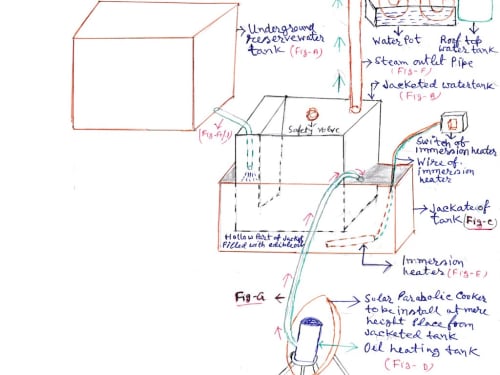 Underground
reservewater
tank (Fig-A)
Water Pot
Roof top
water tank
Steam outlet Pipe
(Fig-F)
Jacketed watertank
(Fig-B)
Safety valve
Switch of
immersion heater
Wire of
immersion
heater
Jackate of
tank (Fig-C)
Hollow Part of Jacket
filled with edible
Immersion
heaters (Fig-E)
Fig-G
Solar Parabolic Cooker
to be install at more
height Place from
Jacketed tank
Oil heating tank
(Fig-D)